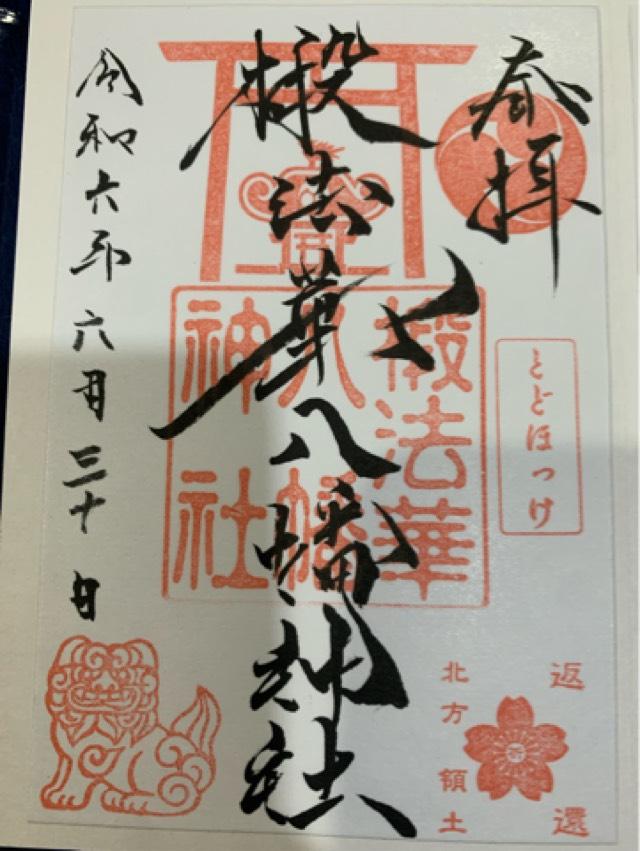 奉拝
とどほっけ
返還
北方領土
椴法華八幡神社
椴法華
八幡
神社
令和六年六月三十日